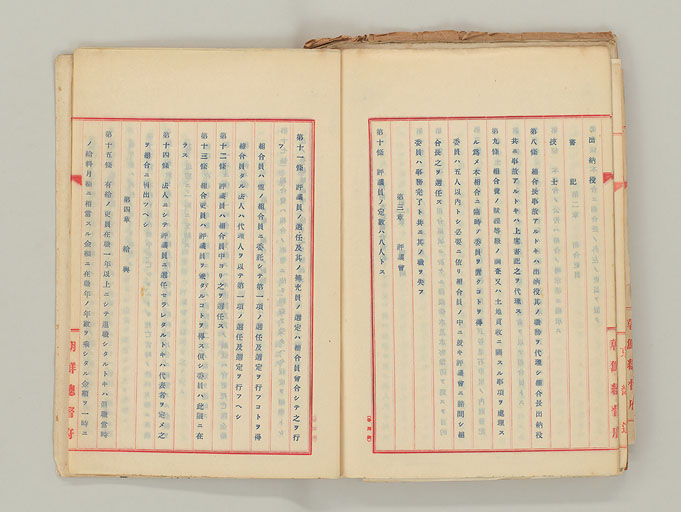 出納役
書記
技士
第八條 組合長事故アルトキハ出納役其ノ職務ヲ代理シ組合長出納役
共ニ事故アルトキハ上席書記之ヲ代理ス
第九條 組合費ノ賦課等級ノ調査又ハ土地買收ニ關スル事項ヲ處理ス
ル爲メ本組合ニ臨時ア委員ヲ置クコトヲ得
委員ハ五人以內トシ必要ニ依リ組合員ノ中ニ就キ評議會ニ諮問シ組
合長之ヲ選任ス
委員ハ事務完了ト共ニ其ノ職ヲ失フ
第三章 評議會
第十條 評議員ノ定數ハ八人トス
第十一條 評議員ノ選任及其ノ補充員ノ選定ハ組合員會合シテ之ヲ行
フ
組合員ハ他ノ組合員ニ委託シテ第一項ノ選任及選定ヲ行フコトヲ得
組合員タル法人ハ代理人ヲ以テ第一項ノ選任及選定ヲ行フヘシ
第十二條 評議員ハ組合員中ヨリ之ヲ選任ス
第十三條 組合吏員ハ評議員ヲ兼タルコトヲ得ス但シ委員ハ此限ニ在
ラス
第十四條 法人ニシテ評議員ニ選任セラレタルトキハ代表者ヲ定メ之
ヲ組合ニ屆出ツヘシ
第四章 給與
第十五條 有給ノ吏員在職一年以上ニシテ退職シタルトキハ退職當時
ノ給料月額ニ相當スル金額ニ在職年ノ年數ヲ乘シタル金額ヲ一時ニ
朝鮮總督府